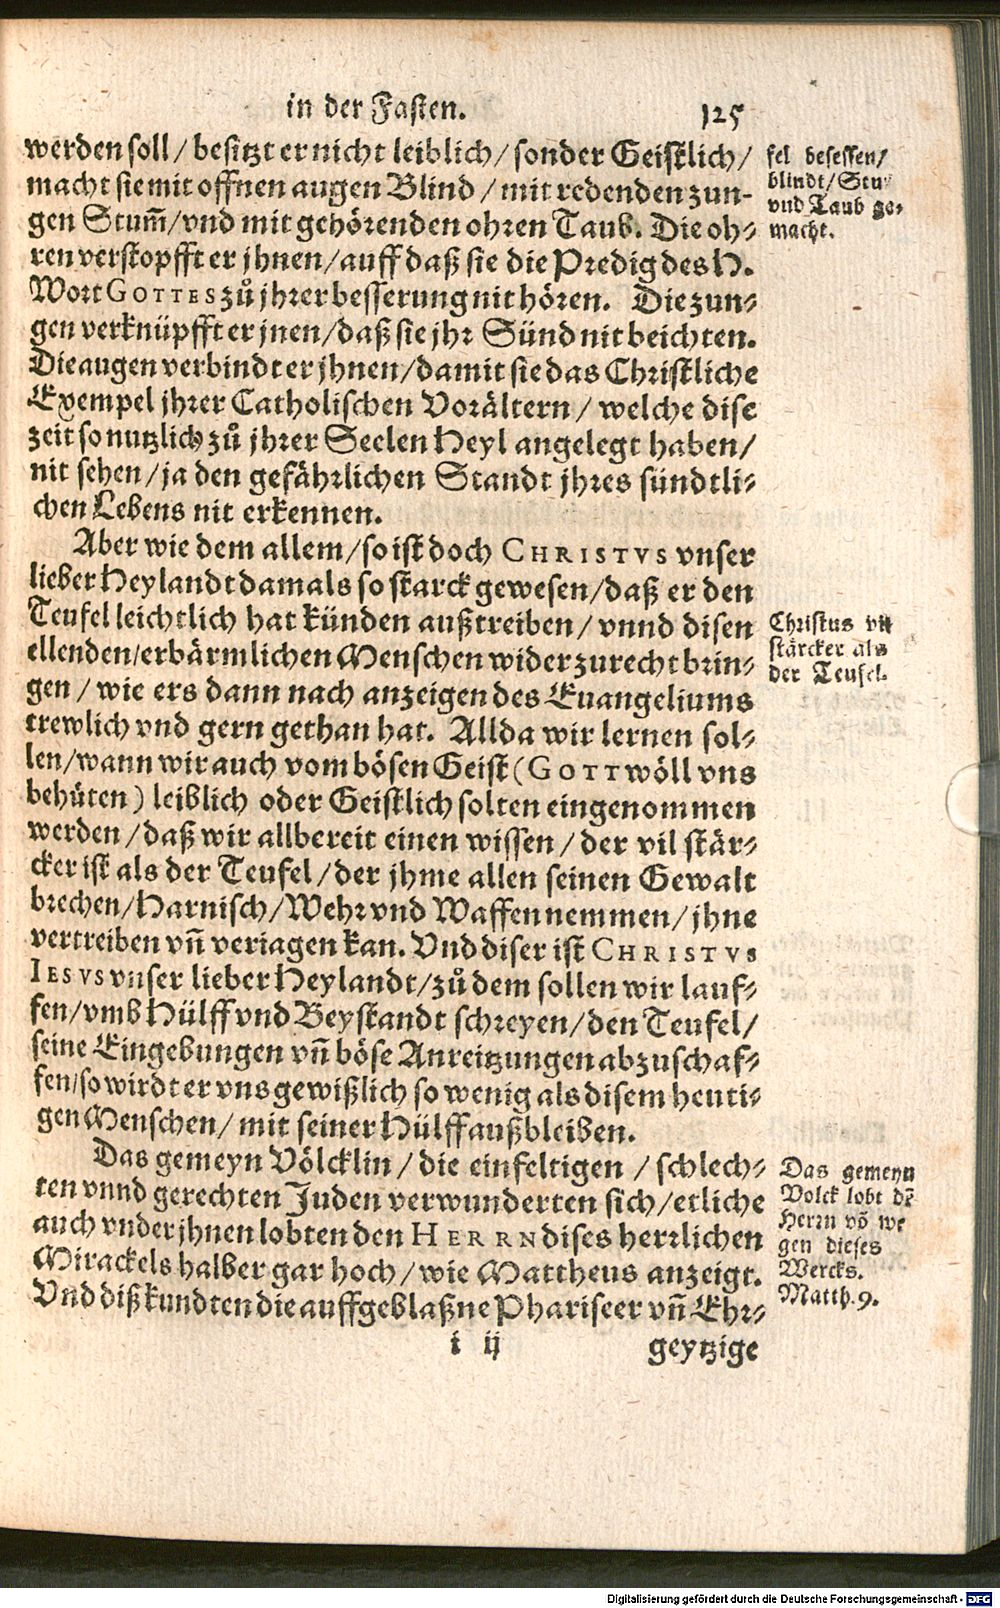 in der Fasten. 125
werden soll / besitzt er nicht leiblich / sonder Geistlich /
macht sie mit offnen augen Blind / mit redenden zun-
gen Stum̃ / vnd mit gehörenden ohren Taub. Die oh-
ren verstopfft er jhnen / auff daß sie die Predig des H.
Wort GOTTES zů jhrer besserung nit hören. Die zun-
gen verknüpfft er jnen / daß sie jhr Sünd nit beichten.
Die augen verbindt er jhnen / damit sie das Christliche
Exempel jhrer Catholischen Vorältern / welche dise
zeit so nutzlich zů jhrer Seelen Heyl angelegt haben /
nit sehen / ja den gefährlichen Standt jhres sündtli-
chen Lebens nit erkennen.
Aber wie dem allem / so ist doch CHRISTVS vnser
lieber Heylandt damals so starck gewesen / daß er den
Teufel leichtlich hat künden außtreiben / vnnd disen
ellenden / erbärmlichen Menschen wider zurecht brin-
gen / wie ers dann nach anzeigen des Euangeliums
trewlich vnd gern gethan hat. Allda wir lernen sol-
len / wann wir auch vom bösen Geist (GOTT wöll vns
behüten) leiblich oder Geistlich solten eingenommen
werden / daß wir allbereit einen wissen / der vil stär-
cker ist als der Teufel / der jhme allen seinen Gewalt
brechen / Harnisch / Wehr vnd Waffen nemmen / jhne
vertreiben vñ veriagen kan. Vnd diser ist CHRISTVS
IESVS vnser lieber Heylandt / zů dem sollen wir lauf-
fen / vmb Hülff vnd Beystandt schreyen / den Teufel /
seine Eingebungen vñ böse Anreitzungen abzuschaf-
fen / so wirdt er vns gewißlich so wenig als disem heuti-
gen Menschen / mit seiner Hülff außbleiben.
Das gemeyn Völcklin / die einfeltigen / schlech-
ten vnnd gerechten Juden verwunderten sich / etliche
auch vnder jhnen lobten den HERRN dises herrlichen
Mirackels halber gar hoch / wie Mattheus anzeigt.
Vnd diß kundten die auffgeblaßne Phariseer vñ Ehr-
i ij geytzige
fel besessen /
blindt / Stu
vnd Taub ge-
macht.
Christus vil
stärcker als
der Teufel.
Das gemeyn
Volck lobt dẽ
Herrn võ we
gen dieses
Wercks.
Matth. 9.
Digitalisierung gefördert durch die Deutsche Forschungsgemeinschaft - DFG